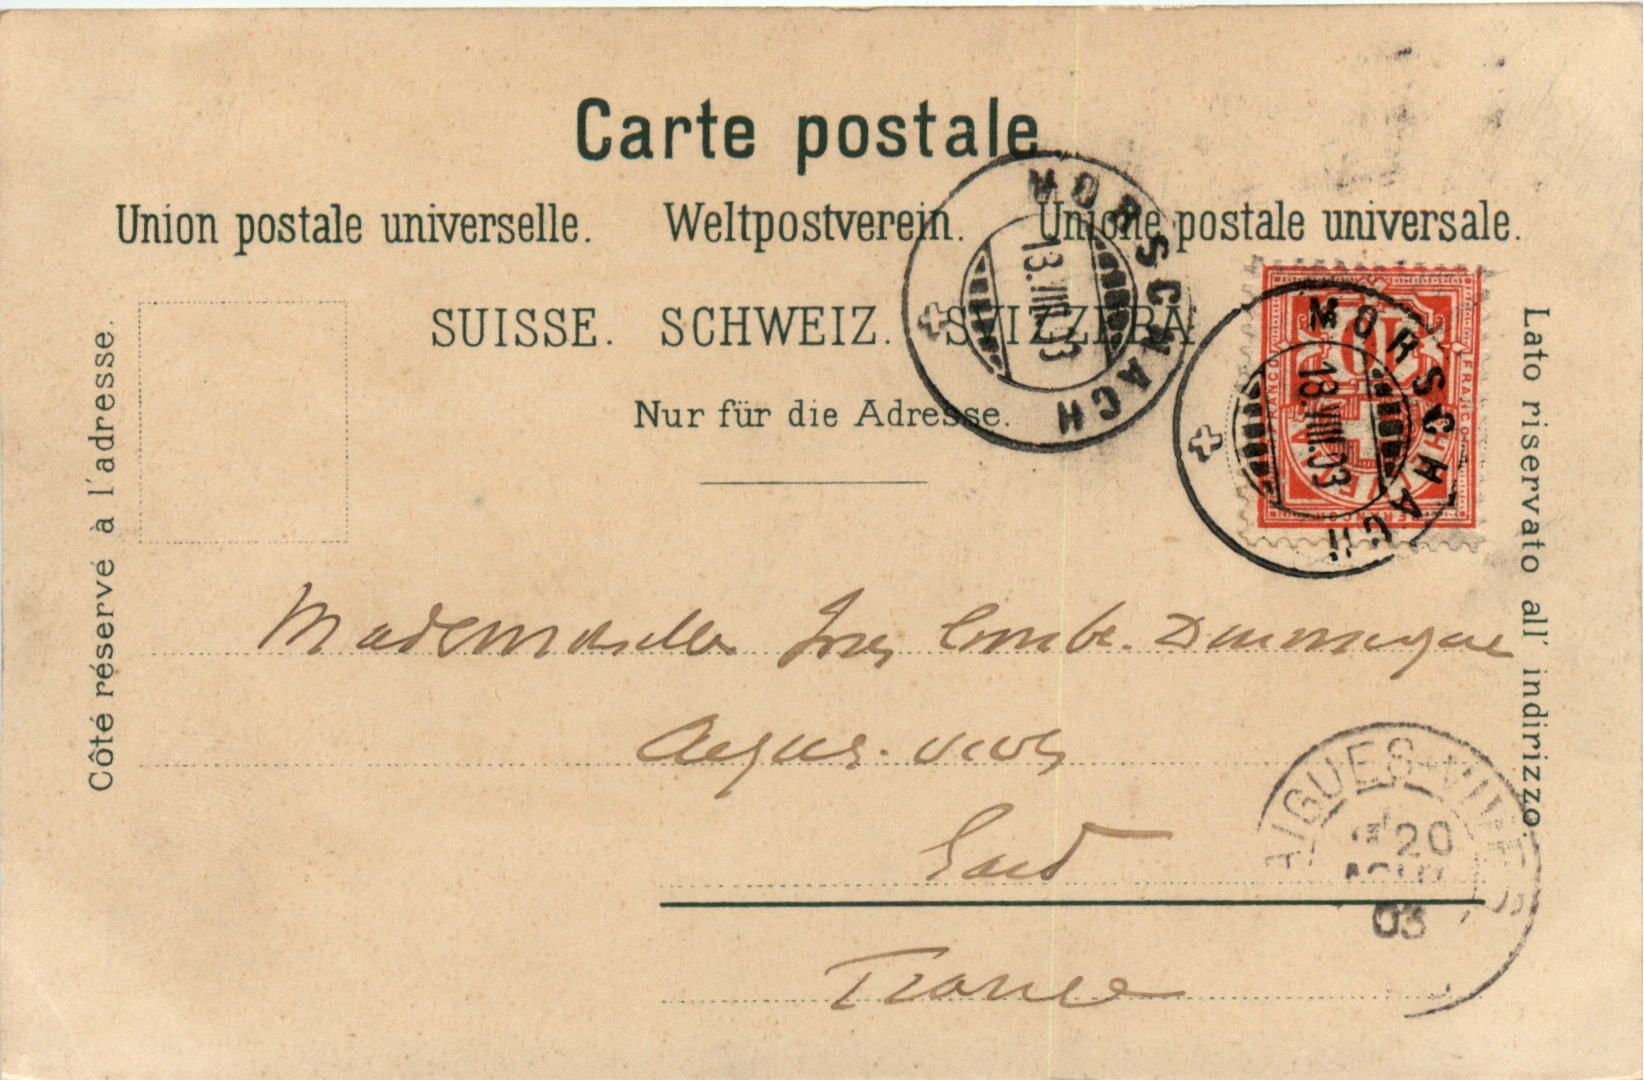 Carte postale
Union postale universelle. Weltpostverein. Unione postale universale.
SUISSE. SCHWEIZ. SVIZZERA
Nur für die Adresse.
Côté réservé à l'adresse.
Lato riservato all' indirizzo.
MORSCHACH
13.VIII.03
MORSCHACH
13.VIII.03
10
FRANCO
FRANCO
HELVETIA
Mademoiselle Combe-Daumegue
Aigues-vives
Gard
France
AIGUES-VIVES
20
AOUT
03